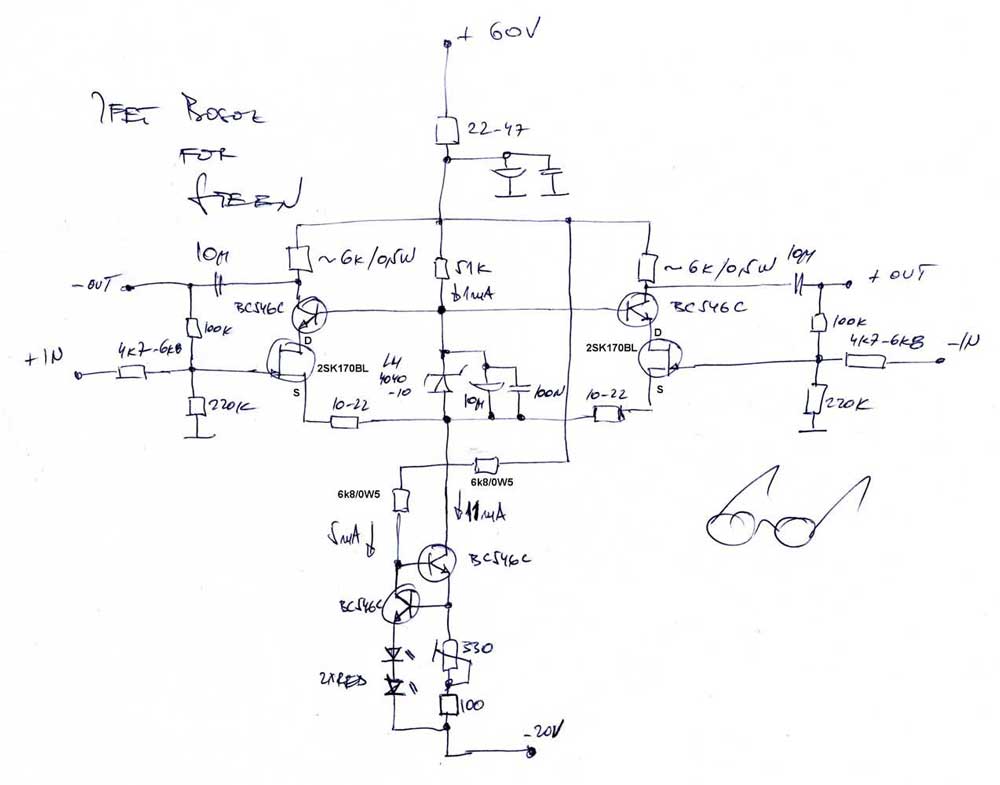 + 60V
JFET BOSOZ
FOR
22-47
10µ
~6K/0,5W
51K
~6K/0,5W
10µ
-OUT
+ OUT
↓1mA
BC546C
BC546C
100K
D
D
100K
+IN
4K7-6K8
2SK170BL
LM
4040
-10
2SK170BL
4K7-6K8
-IN
10µ
100N
S
S
220K
10-22
10-22
220K
6k8/0W5
6k8/0W5
5mA
11mA
BC546C
BC546C
330
2XRED
100
-20V